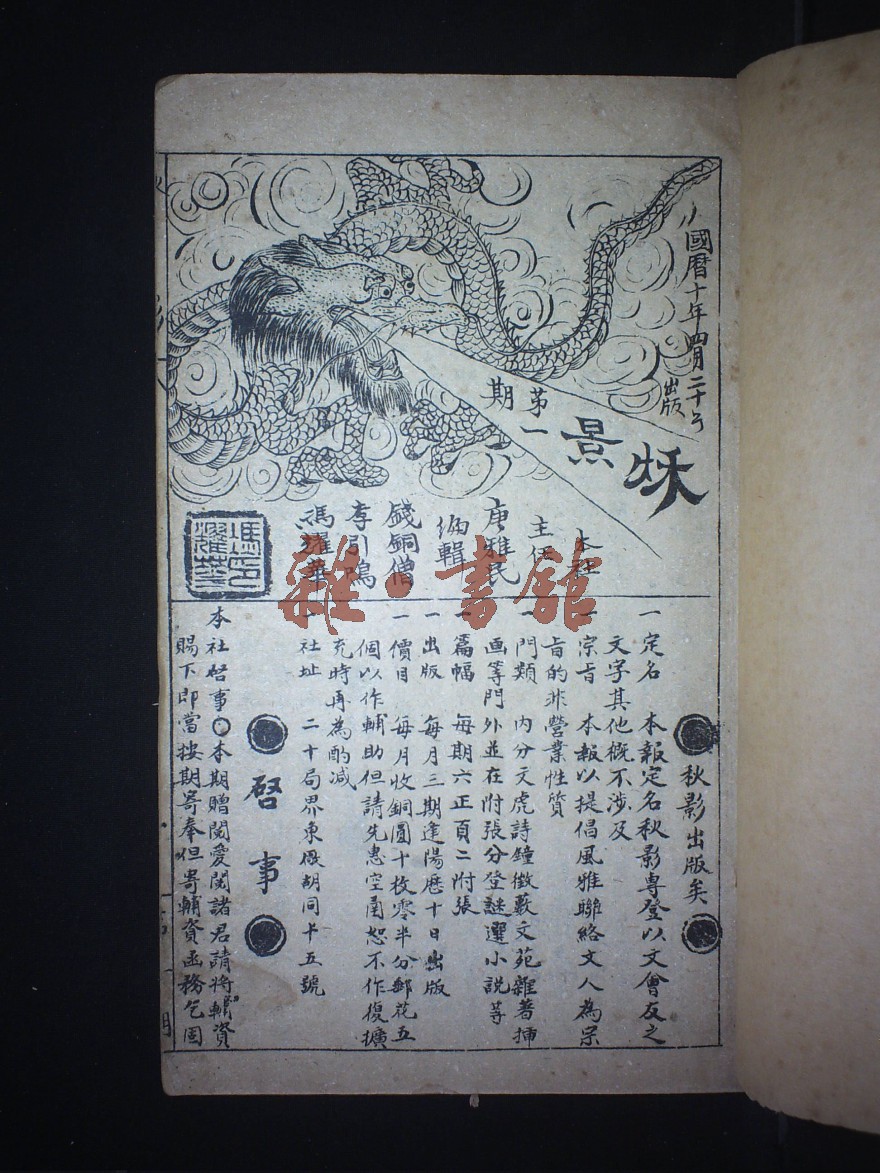 國曆十年四月二十號
出版
秌景
第一
期
本社
主任
唐雅民
編輯
錢銅僧
李引鳴
馮耀華
馮印
耀華
秋影出版矣
一 定名 本報定名秋影專登以文會友之
文字其他概不涉及
一 宗旨 本報以提倡風雅聯絡文人為宗
旨的非營業性質
一 門類 內分文虎詩鐘徵藪文苑雜著插
画等門外並在附張分登謎選小説等
一 篇幅 每期六正頁二附張
一 出版 每月三期逢陽歷十日出版
一 價目 每月收銅圓十枚零半分郵花五
個以作輔助但請先惠空函恕不作復擴
充時再為酌減
一 社址 二十局界東厰胡同十五號
啓事
本社啓事〇本期贈閱愛閱諸君請將輔資
賜下即當按期寄奉但寄輔資函務乞固
雜·書館